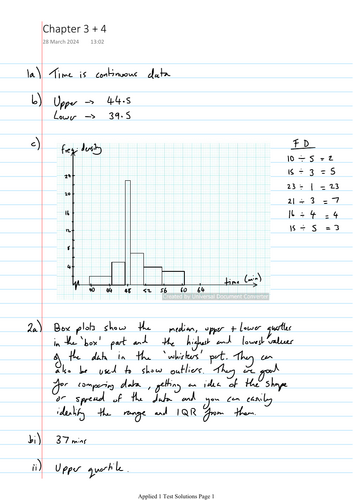 Chapter 3 + 4
28 March 2024 13:02
1a) Time is continuous data
b) Upper → 44.5
Lower → 39.5
c) freq. density
FD
10 ÷ 5 = 2
15 ÷ 3 = 5
23 ÷ 1 = 23
21 ÷ 3 = 7
16 ÷ 4 = 4
15 ÷ 5 = 3
24
20
16
12
8
4
40 44 48 52 56 60 64
time (min)
Created by Universal Document Converter
2a) Box plots show the median, upper + lower quartiles
in the 'box' part and the highest and lowest values
of the data in the 'whiskers' part. They can
also be used to show outliers. They are good
for comparing data, getting an idea of the shape
or spread of the data and you can easily
identify the range and IQR from them.
bi) 37 mins
ii) Upper quartile.
Applied 1 Test Solutions Page 1